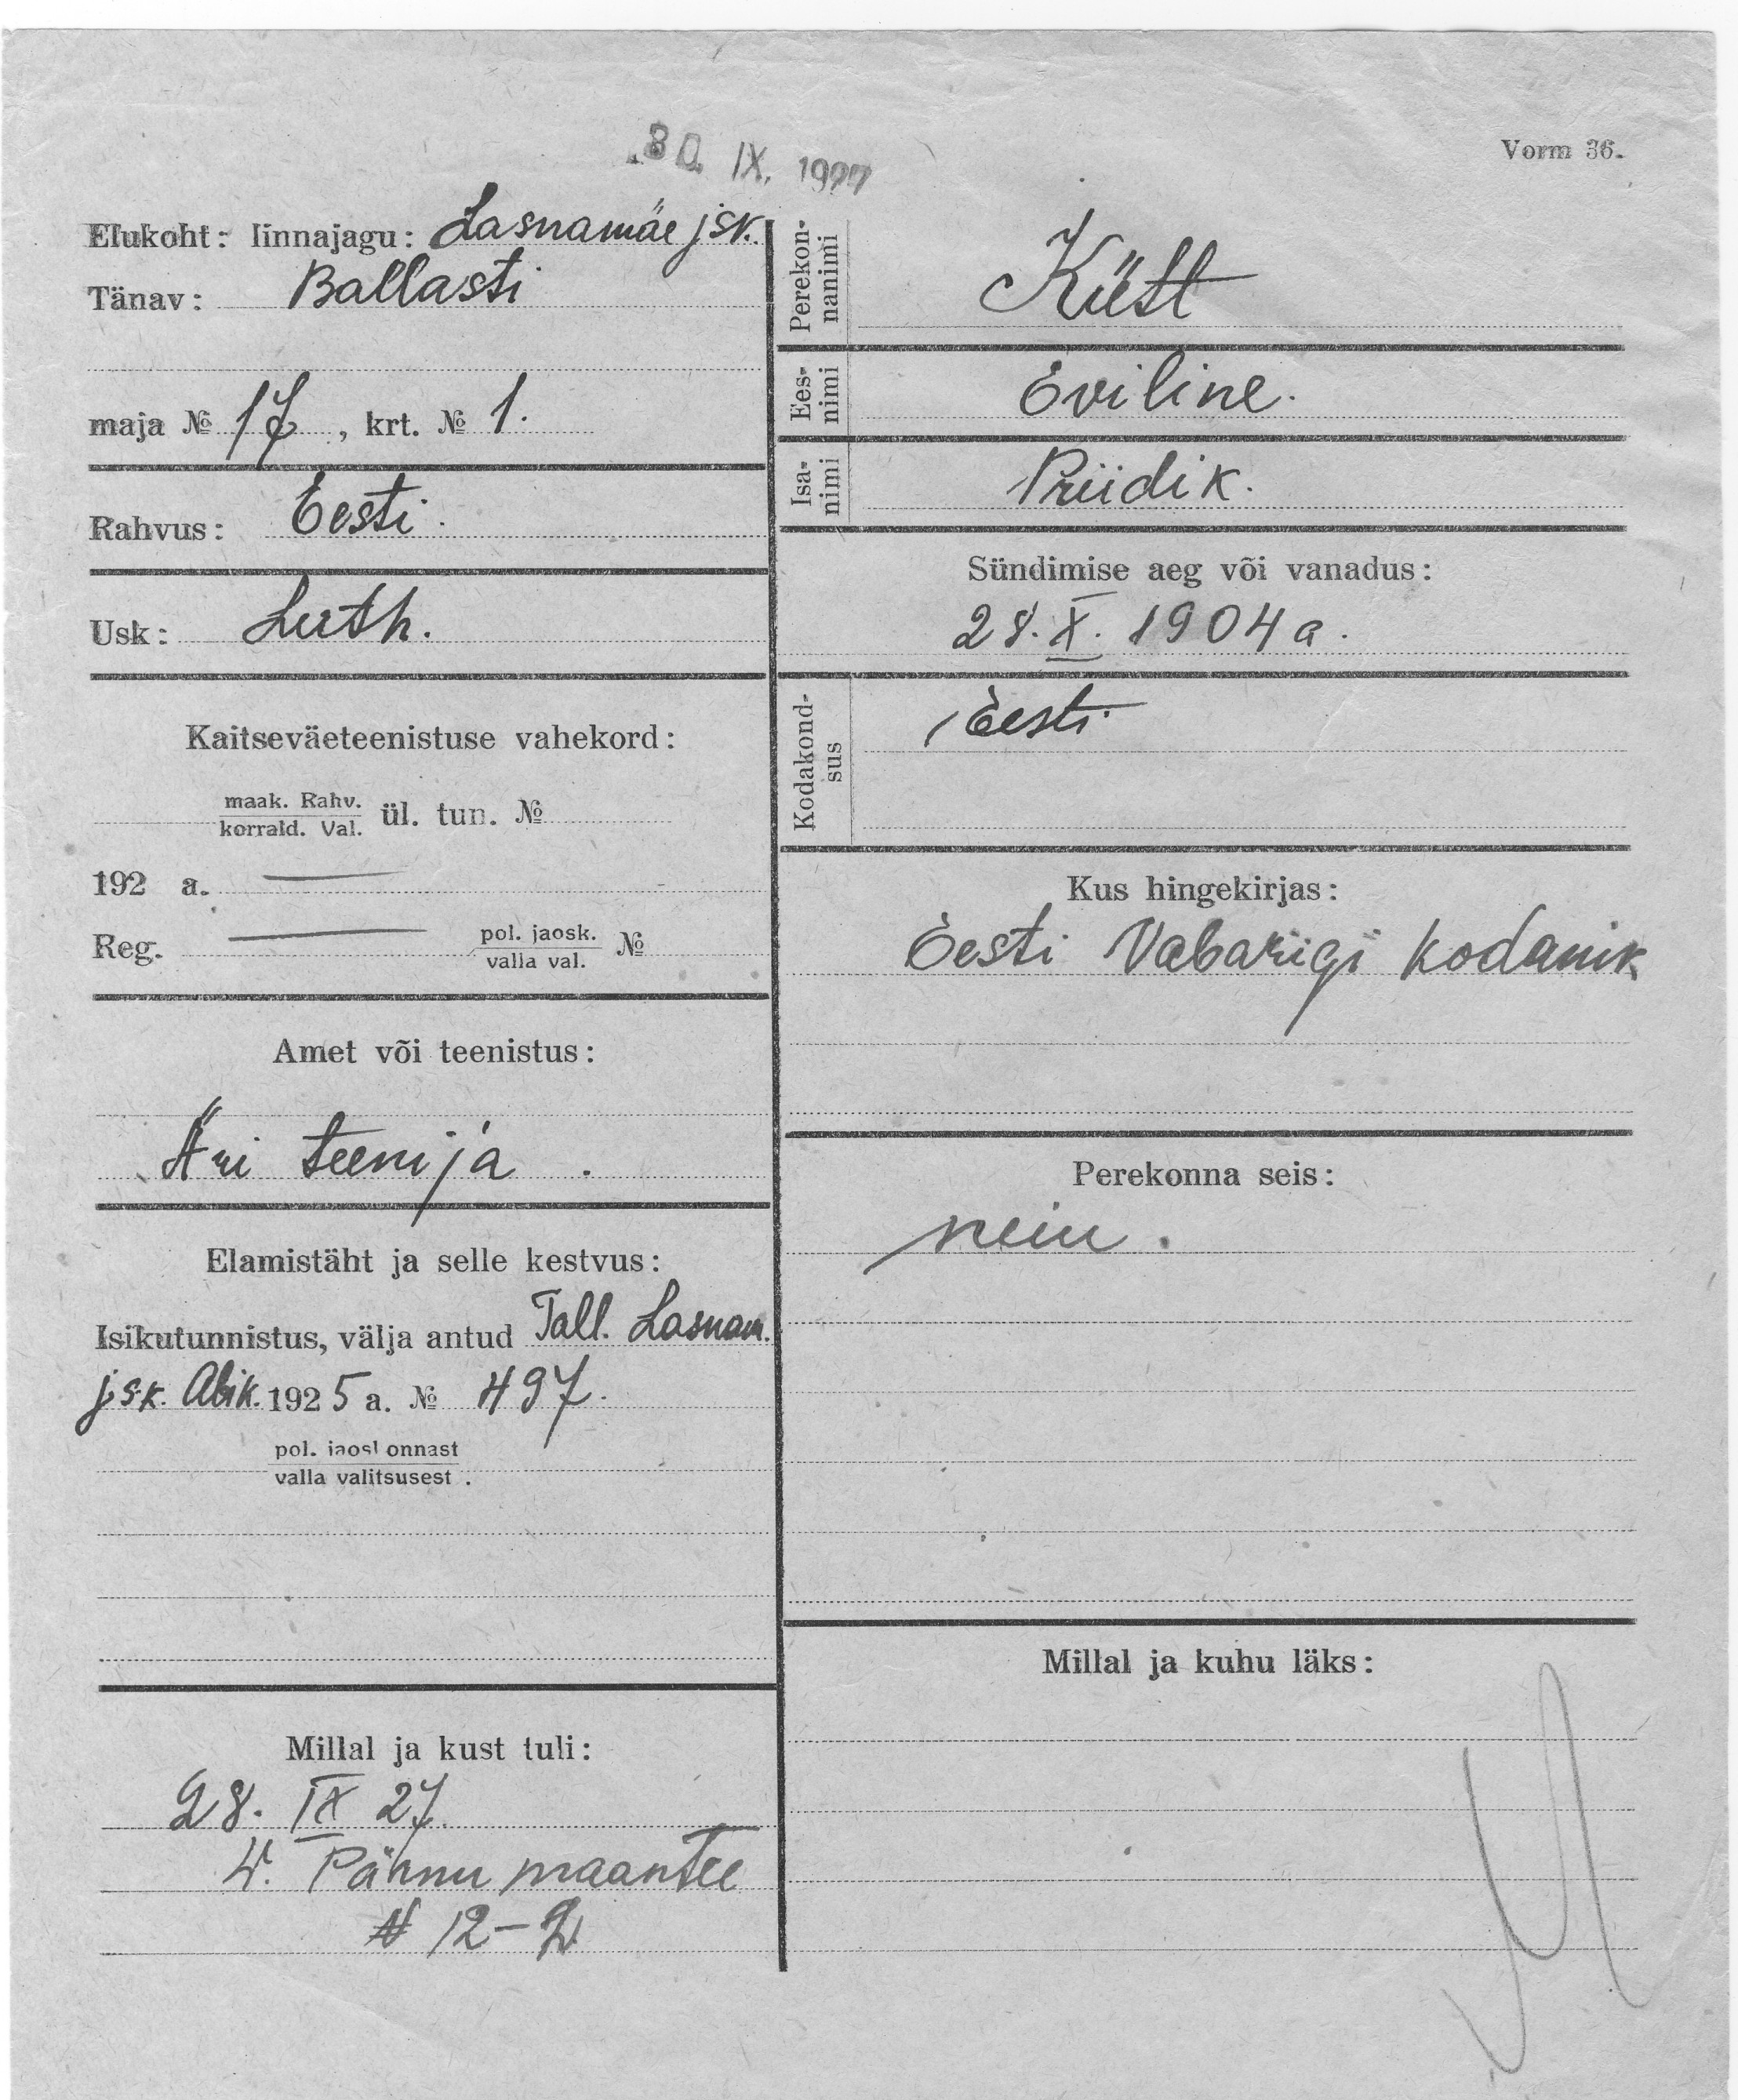 30. IX. 1927
Vorm 36.
Elukoht: linnajagu: Lasnamäe jsk.
Tänav: Ballasti
maja № 17, krt. № 1.
Rahvus: Eesti.
Usk: Luth.
Kaitseväeteenistuse vahekord:
maak. Rahv.
korrald. Val. ül. tun. №
192 a.
Reg. pol. jaosk.
valla val. №
Amet või teenistus:
Äri teenija.
Elamistäht ja selle kestvus:
Isikutunnistus, välja antud Tall. Lasnam.
jsk. Abik. 1925 a. № 497.
pol. jaoskonnast
valla valitsusest.
Millal ja kust tuli:
28. IX 27.
Pärnu maantee
№ 12-2
Perekon-
nanimi
Kütt
Ees-
nimi
Eviline.
Isa-
nimi
Priidik.
Sündimise aeg või vanadus:
28. X. 1904 a.
Kodakond-
sus
Eesti
Kus hingekirjas:
Eesti Vabarigi kodanik
Perekonna seis:
neiu.
Millal ja kuhu läks: